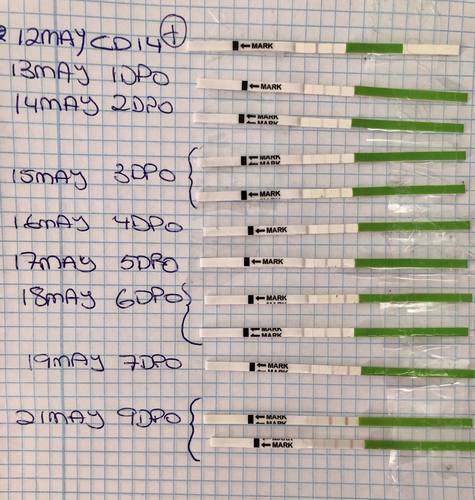 12MAY CD14 +
← MARK
13MAY 1DPO
← MARK
14MAY 2DPO
← MARK
← MARK
15MAY 3DPO
← MARK
16MAY 4DPO
← MARK
17MAY 5DPO
← MARK
18MAY 6DPO
← MARK
← MARK
19MAY 7DPO
← MARK
21MAY 9DPO
← MARK
← MARK